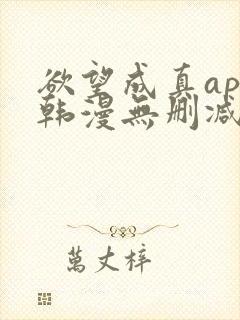 欲望成真ap
韩漫無删减
萬丈梓